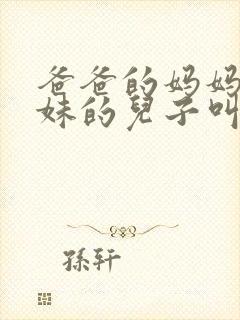 爸爸的妈妈
妹的兒子叫
孫轩